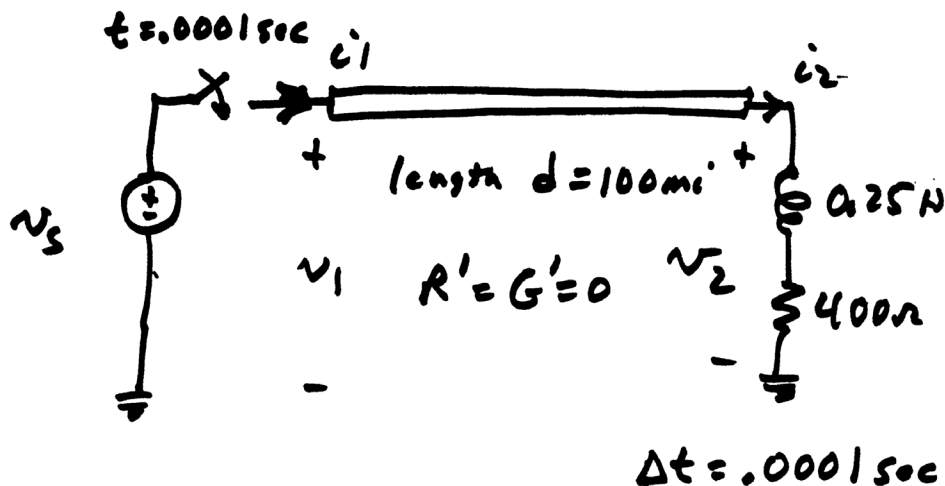 t=.0001 sec
i1
i2
+
+
length d=100mi
0.25H
vs
+
-
v1
R'=G'=0
v2
400Ω
-
-
Δt=.0001 sec